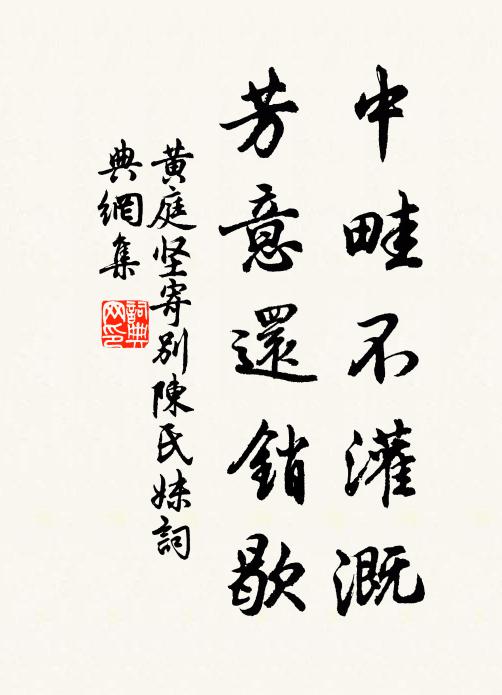 中畦不灌溉
芳意還銷歇
黄庭坚寄别陳氏妹詞
典網集
詞典
网印